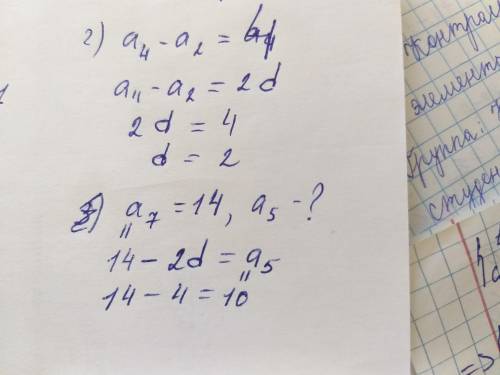 2) a₄ - a₂ = 4
a₄ - a₂ = 2d
2d = 4
d = 2
a₇ = 14, a₅ - ?
14 - 2d = a₅
14 - 4 = 10
Контрол
элемент
Группа:
студен